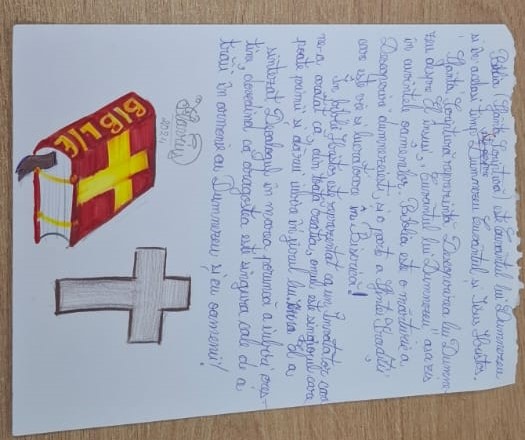 Biblia (Sfânta Scriptură) este cuvântul lui Dumnezeu
și în același timp despre Dumnezeu Cuvântul și Iisus Hristos.
Sfânta Scriptură reprezintă Descoperirea lui Dumne-
zeu despre El însuși, Cuvântul lui Dumnezeu așa zis
în cuvintele oamenilor. Biblia este o mărturie a
Descoperirii dumnezeiești, și o parte a Sfintei Tradiții,
care este vie și lucrătoare în Biserică!
În Biblie Hristos este reprezentat ca un Învățător care
ne-a arătat că din toată creația, omul este singurul care
poate primi și dărui iubire în jurul lui. El a
sintezat Decalogul în marea poruncă a iubirii oferi-
tive, dovedind că dragostea este singura cale de a
trăi în armonie cu Dumnezeu și cu oamenii!
2021
BIBLIA